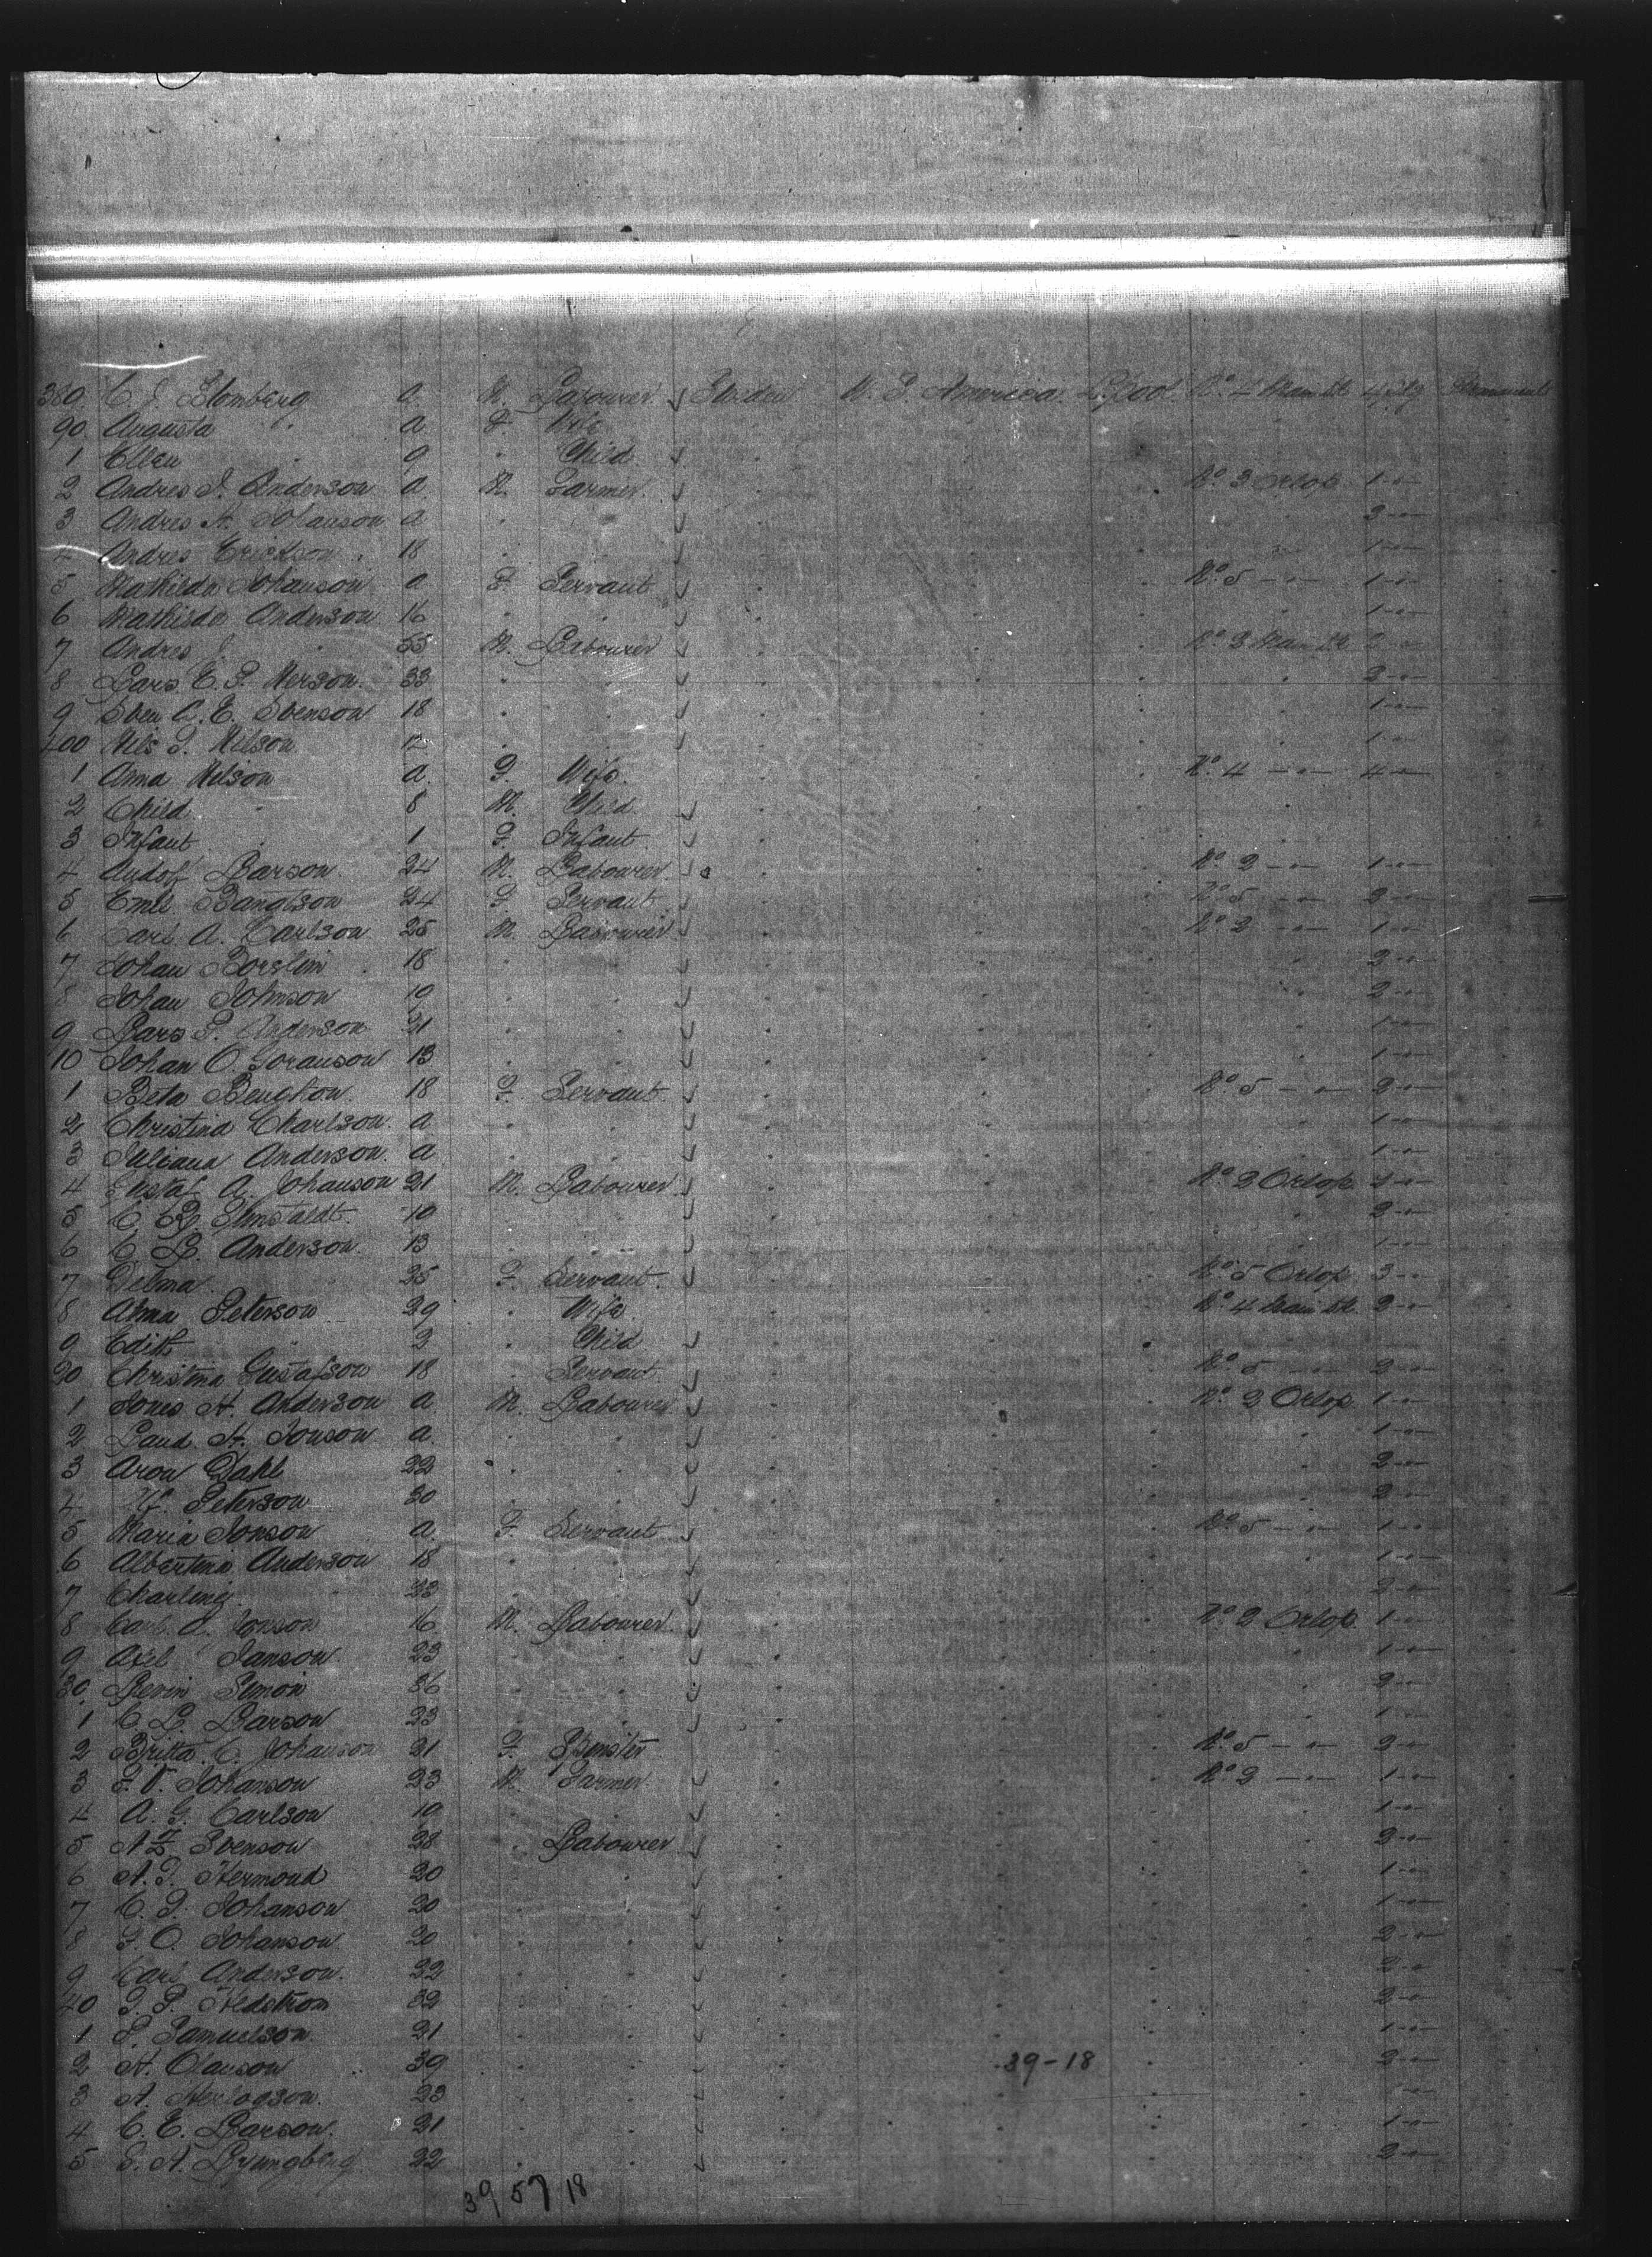 380 C. J. Blomberg a M. Labourer Sweden U. S. America L.pool No. 4 Main dk 4 pkg Permanent
90 Augusta " a F. Wife
1 Ellen 9 " Child
2 Andres J. Anderson a M. Farmer No. 3 Orlop 1 - " -
3 Andres A. Johanson a 3 - " -
4 Andres Erickson 18 1 - " -
5 Mathilda Johanson a F. Servant No. 5 - " - 1 - " -
6 Mathilda Anderson 16 1 - " -
7 Andres J. 55 M. Labourer No. 3 Main dk
8 Lars E. P. Nerson 33 3 - " -
9 Sben C. E. Sbenson 18 1 - " -
400 Nils P. Nilson 1 - " -
1 Anna Nilson a F. Wife No. 4 - " - 4 - " -
2 Child 8 M. Child
3 Infant 1 F. Infant
4 Larson 24 M. Labourer No. 2 - " - 1 - " -
5 Emel Bangtson 24 F. Servant No. 5 - " - 2 - " -
6 Carl A. Carlson 25 M. Labourer No. 2 - " - 1 - " -
7 Johan 18 2 - " -
8 Johan Johnson 19 2 - " -
9 Lars P. Anderson 21 1 - " -
10 Johan O. Goranson 13 1 - " -
1 Beta Bengtson 18 F. Servant No. 5 - " - 2 - " -
2 Christina Charlson a 1 - " -
3 Juliana Anderson a 1 - " -
4 Gustaf A. Johanson 21 M. Labourer No. 2 Orlop 1 - " -
5 C. 19 2 - " -
6 C. L. Anderson 13 1 - " -
7 Delma " 25 F. Servant No. 5 Orlop 3 - " -
8 Alma Peterson 29 " Wife No. 4 Main dk 2 - " -
9 Edith " 2 " Child
20 Christina Gustafson 18 Servant No. 5 - " - 2 - " -
1 Jones A. Anderson a M. Labourer No. 2 Orlop 1 - " -
2 A. Jonson a 1 - " -
3 Aron Dahl 22 2 - " -
4 Peterson 30 2 - " -
5 Maria Jonson a F. Servant No. 5 - " - 1 - " -
6 Albertina Anderson 18 1 - " -
7 Charling " 23 2 - " -
8 Carl A. Jonson 16 M. Labourer No. 2 Orlop 1 - " -
9 Axel Janson 23 1 - " -
30 Levin Simon 36 2 - " -
1 C. L. Larson 23 1 - " -
2 Britta C. Johanson 21 F. Spinster No. 5 - " - 2 - " -
3 F. V. Johanson 23 M. Farmer No. 2 - " - 1 - " -
4 A. G. Carlson 19 1 - " -
5 A. Z. Svenson 28 Labourer 2 - " -
6 A. P. Hermond 20 1 - " -
7 C. P. Johanson 20 1 - " -
8 F. O. Johanson 20 2 - " -
9 Carl Anderson 22 2 - " -
40 P. P. Hedstrom 32 2 - " -
1 P. Samuelson 21 1 - " -
2 A. Olauson 39 39-18 2 - " -
3 A. Herlogson 23
4 C. E. Larson 21 1 - " -
5 E. A. Lyungberg 22 2 - " -
39 57 18